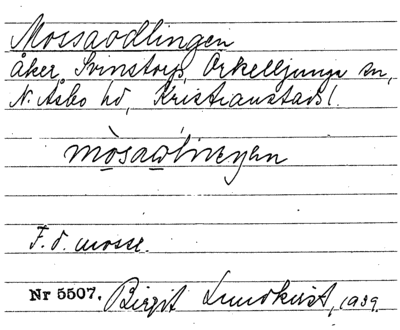 Mossaodlingen
åker, Svinstorp, Örkelljunga sn,
N. Åsbo hd, Kristianstads l.
mòsaωlineyen
F. d. mosse.
Nr 5507. Birgit Lundkvist, 1939.